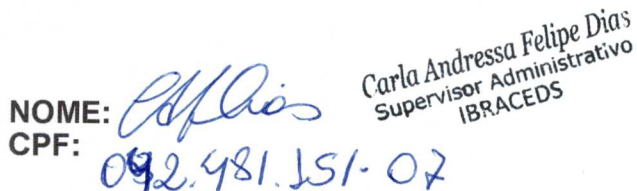 NOME: CAFDias
CPF: 092.481.151-07
Carla Andressa Felipe Dias
Supervisor Administrativo
IBRACEDS